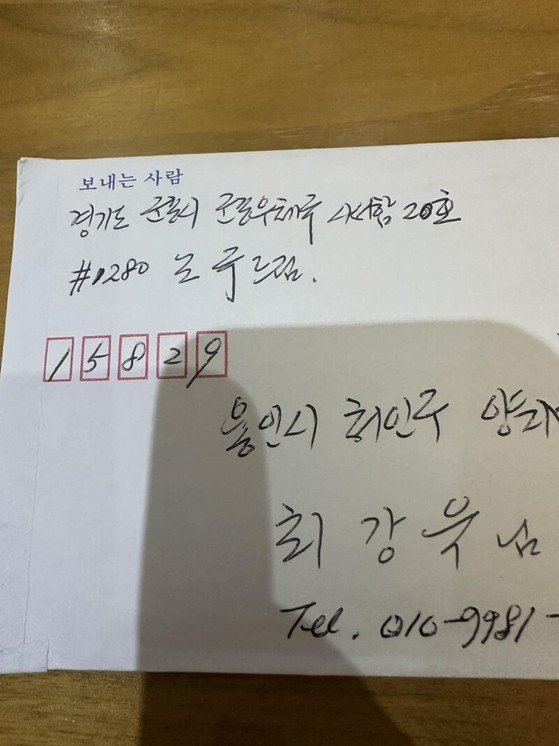 보내는 사람
경기도 군포시 군포우체국 사서함 20호
#1280 노 드림.
15829
용인시 처인구 양지
최 강 욱 님
Tel. 010-9981-